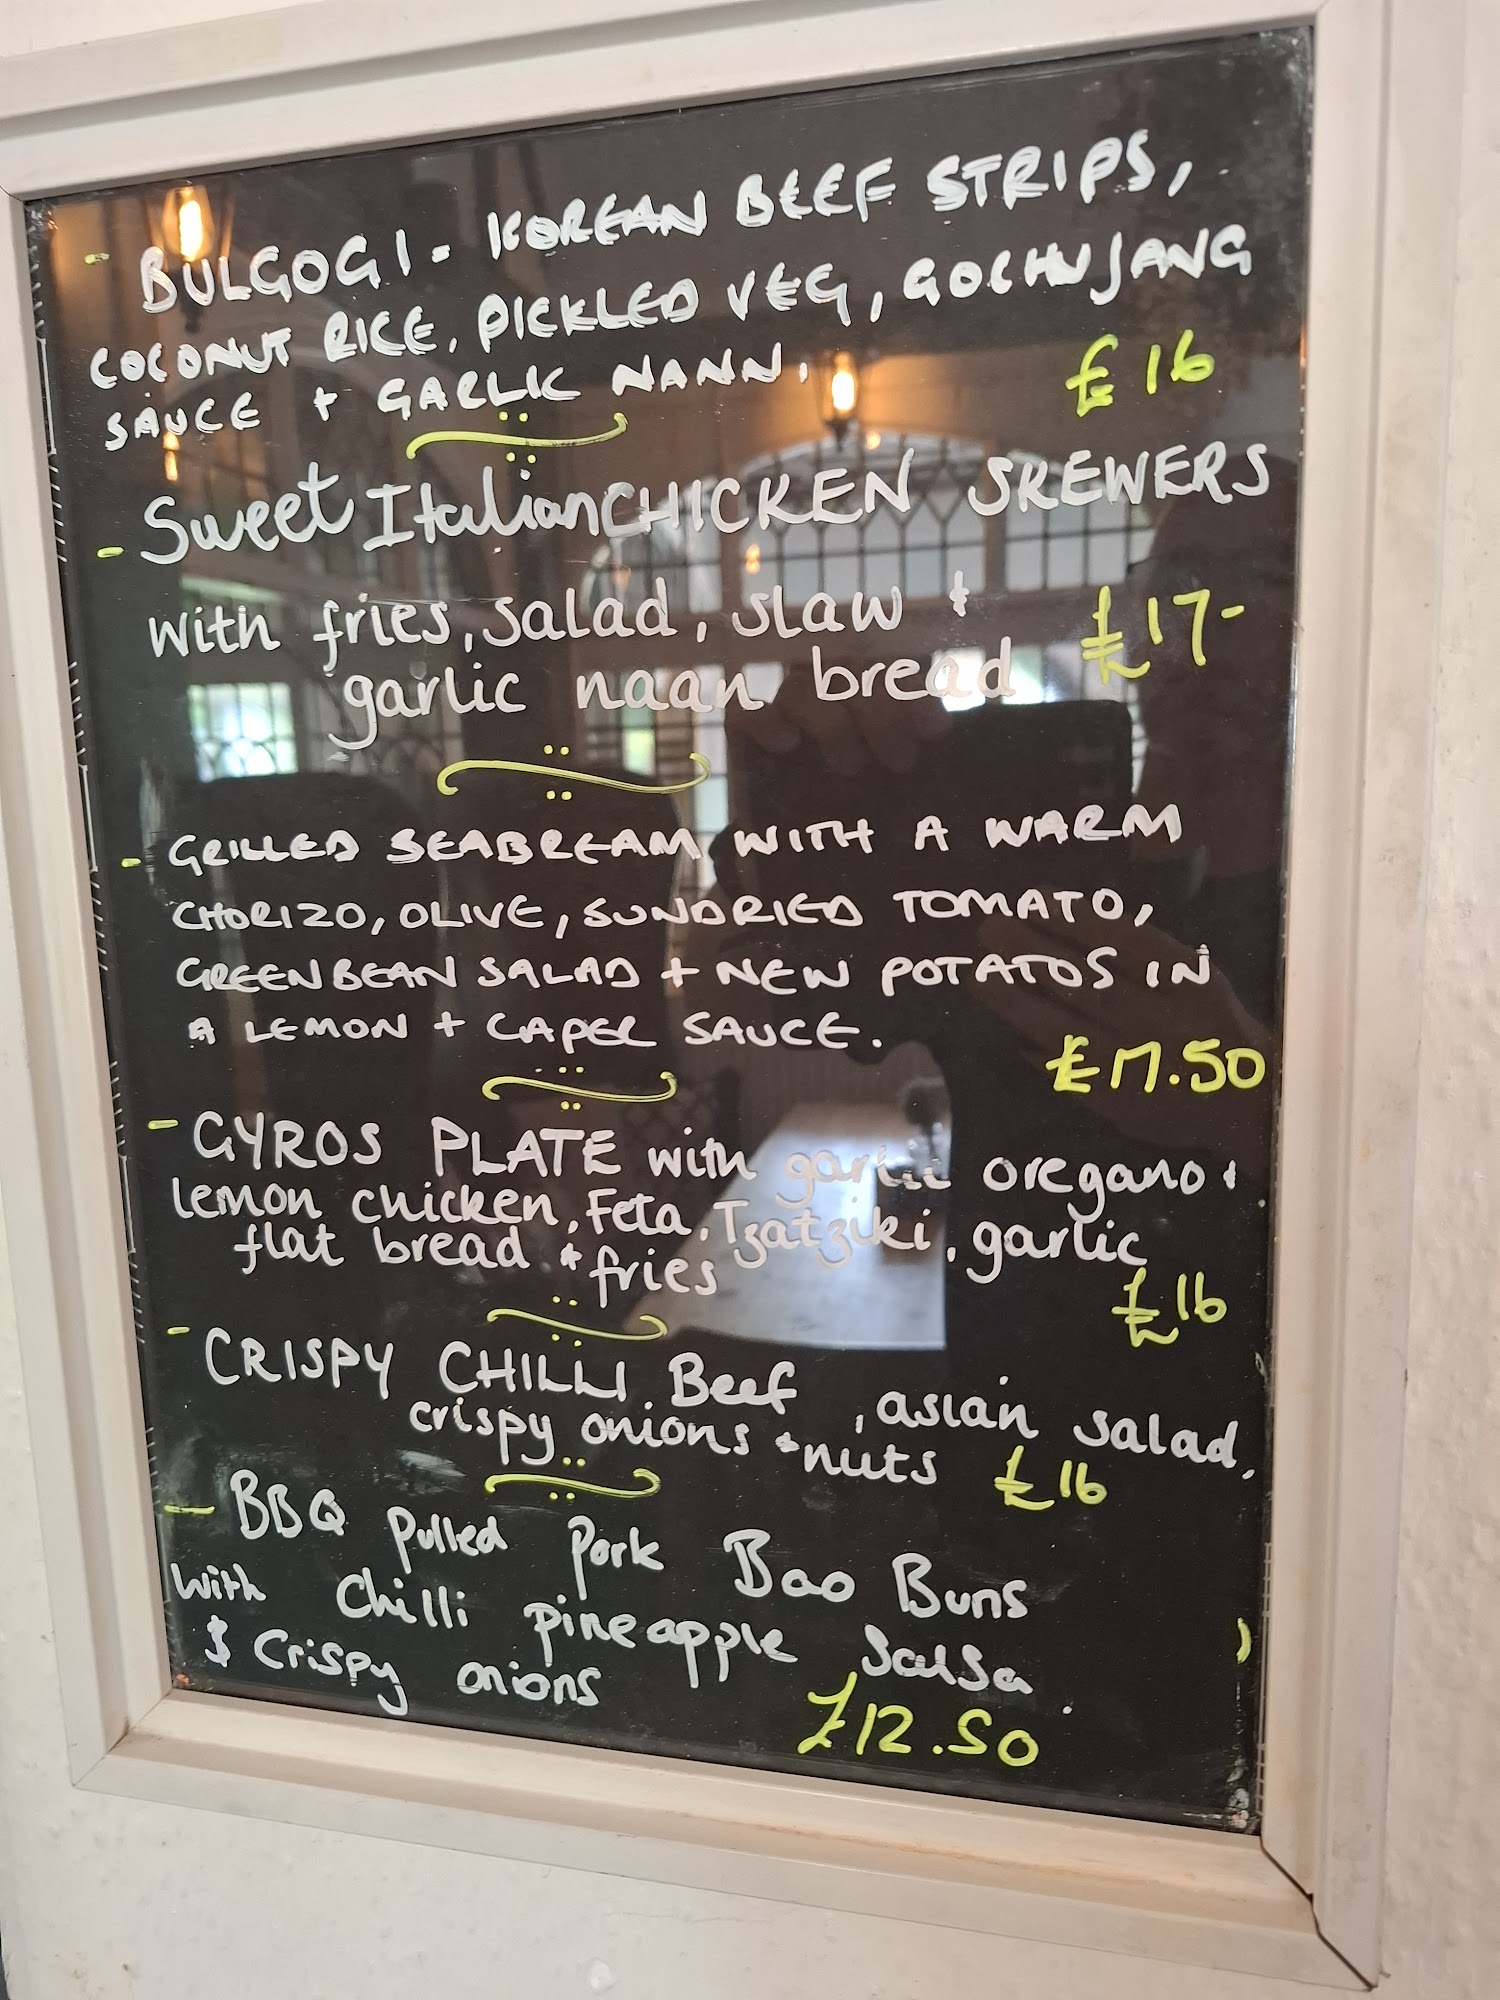 - BULGOGI - KOREAN BEEF STRIPS,
COCONUT RICE, PICKLED VEG, GOCHUJANG
SAUCE + GARLIC NANN. £16
- Sweet Italian CHICKEN SKEWERS
with fries, salad, slaw &
garlic naan bread £17-
- GRILLED SEABREAM WITH A WARM
CHORIZO, OLIVE, SUNDRIED TOMATO,
GREENBEAN SALAD + NEW POTATOS IN
A LEMON + CAPER SAUCE.
£17.50
- GYROS PLATE with garlic oregano &
lemon chicken, Feta, Tzatziki, garlic
flat bread & fries
£16
- CRISPY CHILLI Beef, asian salad,
crispy onions & nuts £16
- BBQ Pulled Pork Bao Buns
with Chilli pineapple Salsa.
& Crispy onions £12.50